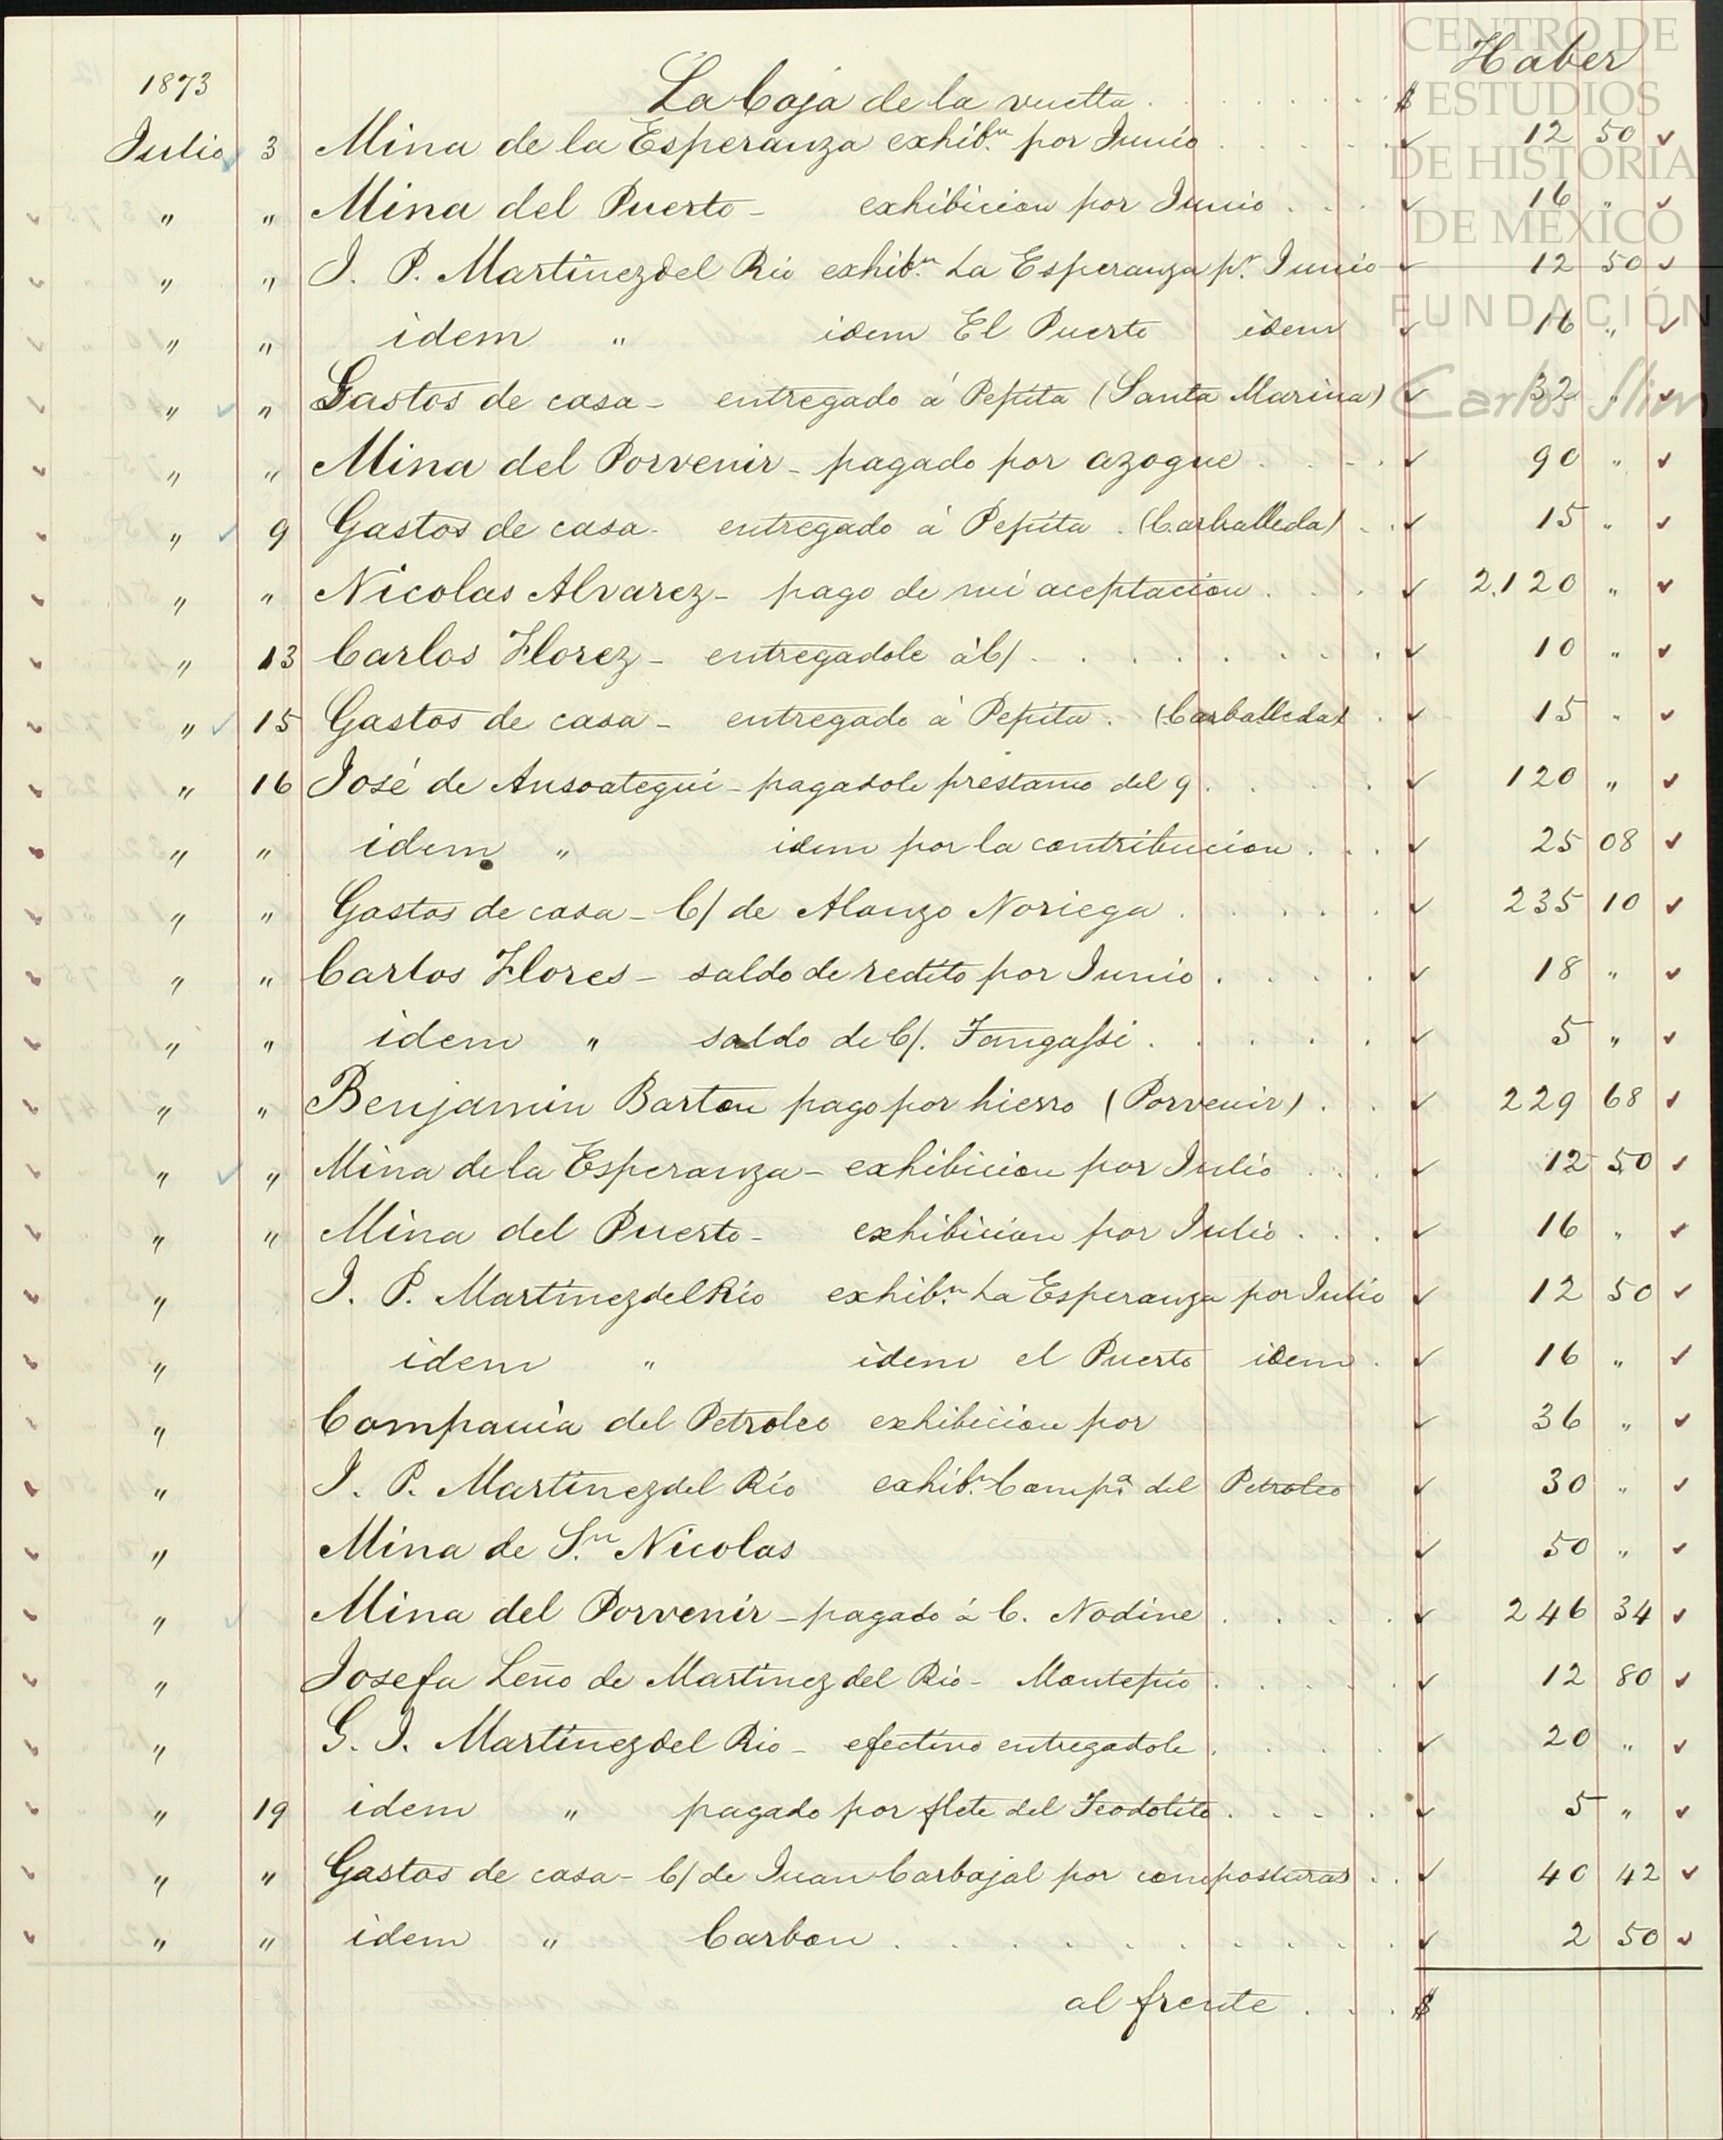 CENTRO DE
ESTUDIOS
DE HISTORIA
DE MÉXICO
FUNDACIÓN
Carlos Slim
Haber
1873 La Caja de la vuelta . . . . . . . $
Julio 3 Mina de la Esperanza exhib.n por Junio . . . . 12 50
" " Mina del Puerto - exhibicion por Junio . . . 16 "
" " J. P. Martinez del Rio exhib.n La Esperanza p.r Junio 12 50
" " idem " idem El Puerto idem 16 "
" " Gastos de casa - entregado á Pepita (Santa Marina) 32 "
" " Mina del Porvenir - pagado por azogue . . . 90 "
" 9 Gastos de casa - entregado á Pepita . (Carballeda) . . 15 "
" " Nicolas Alvarez - pago de mi aceptacion . . . 2.120 "
" 13 Carlos Florez - entregadole á C/ . . . . . . . 10 "
" 15 Gastos de casa - entregado á Pepita . (Carballeda) . 15 "
" 16 José de Ansoategui - pagadole prestamo del 9 . . . . 120 "
" " idem " idem por la contribucion . . . 25 08
" " Gastos de casa - C/ de Alonzo Noriega . . . . . 235 10
" " Carlos Flores - saldo de redito por Junio . . . . 18 "
" " idem " saldo de C/. Fangassi . . . . . 5 "
" " Benjamin Barton pago por hierro (Porvenir) . . 229 68
" " Mina de la Esperanza - exhibicion por Julio . . . 12 50
" " Mina del Puerto - exhibicion por Julio . . . 16 "
" J. P. Martinez del Rio exhib.n La Esperanza por Julio 12 50
" idem " idem el Puerto idem . 16 "
" Compania del Petroleo exhibicion por 36 "
" J. P. Martinez del Rio exhib.n Comp.a del Petroleo 30 "
" Mina de S.n Nicolas 50 "
" Mina del Porvenir - pagado á C. Nodine . . . . 246 34
" Josefa Leño de Martinez del Rio - Montepio . . . . . 12 80
" G. J. Martinez del Rio - efectivo entregadole . . . . 20 "
" 19 idem " pagado por flete del Teodolito . . . . 5 "
" " Gastos de casa - C/ de Juan Carbajal por composturas . . 40 42
" " idem " Carbon . . . . . . . . . . 2 50
al frente . . . $